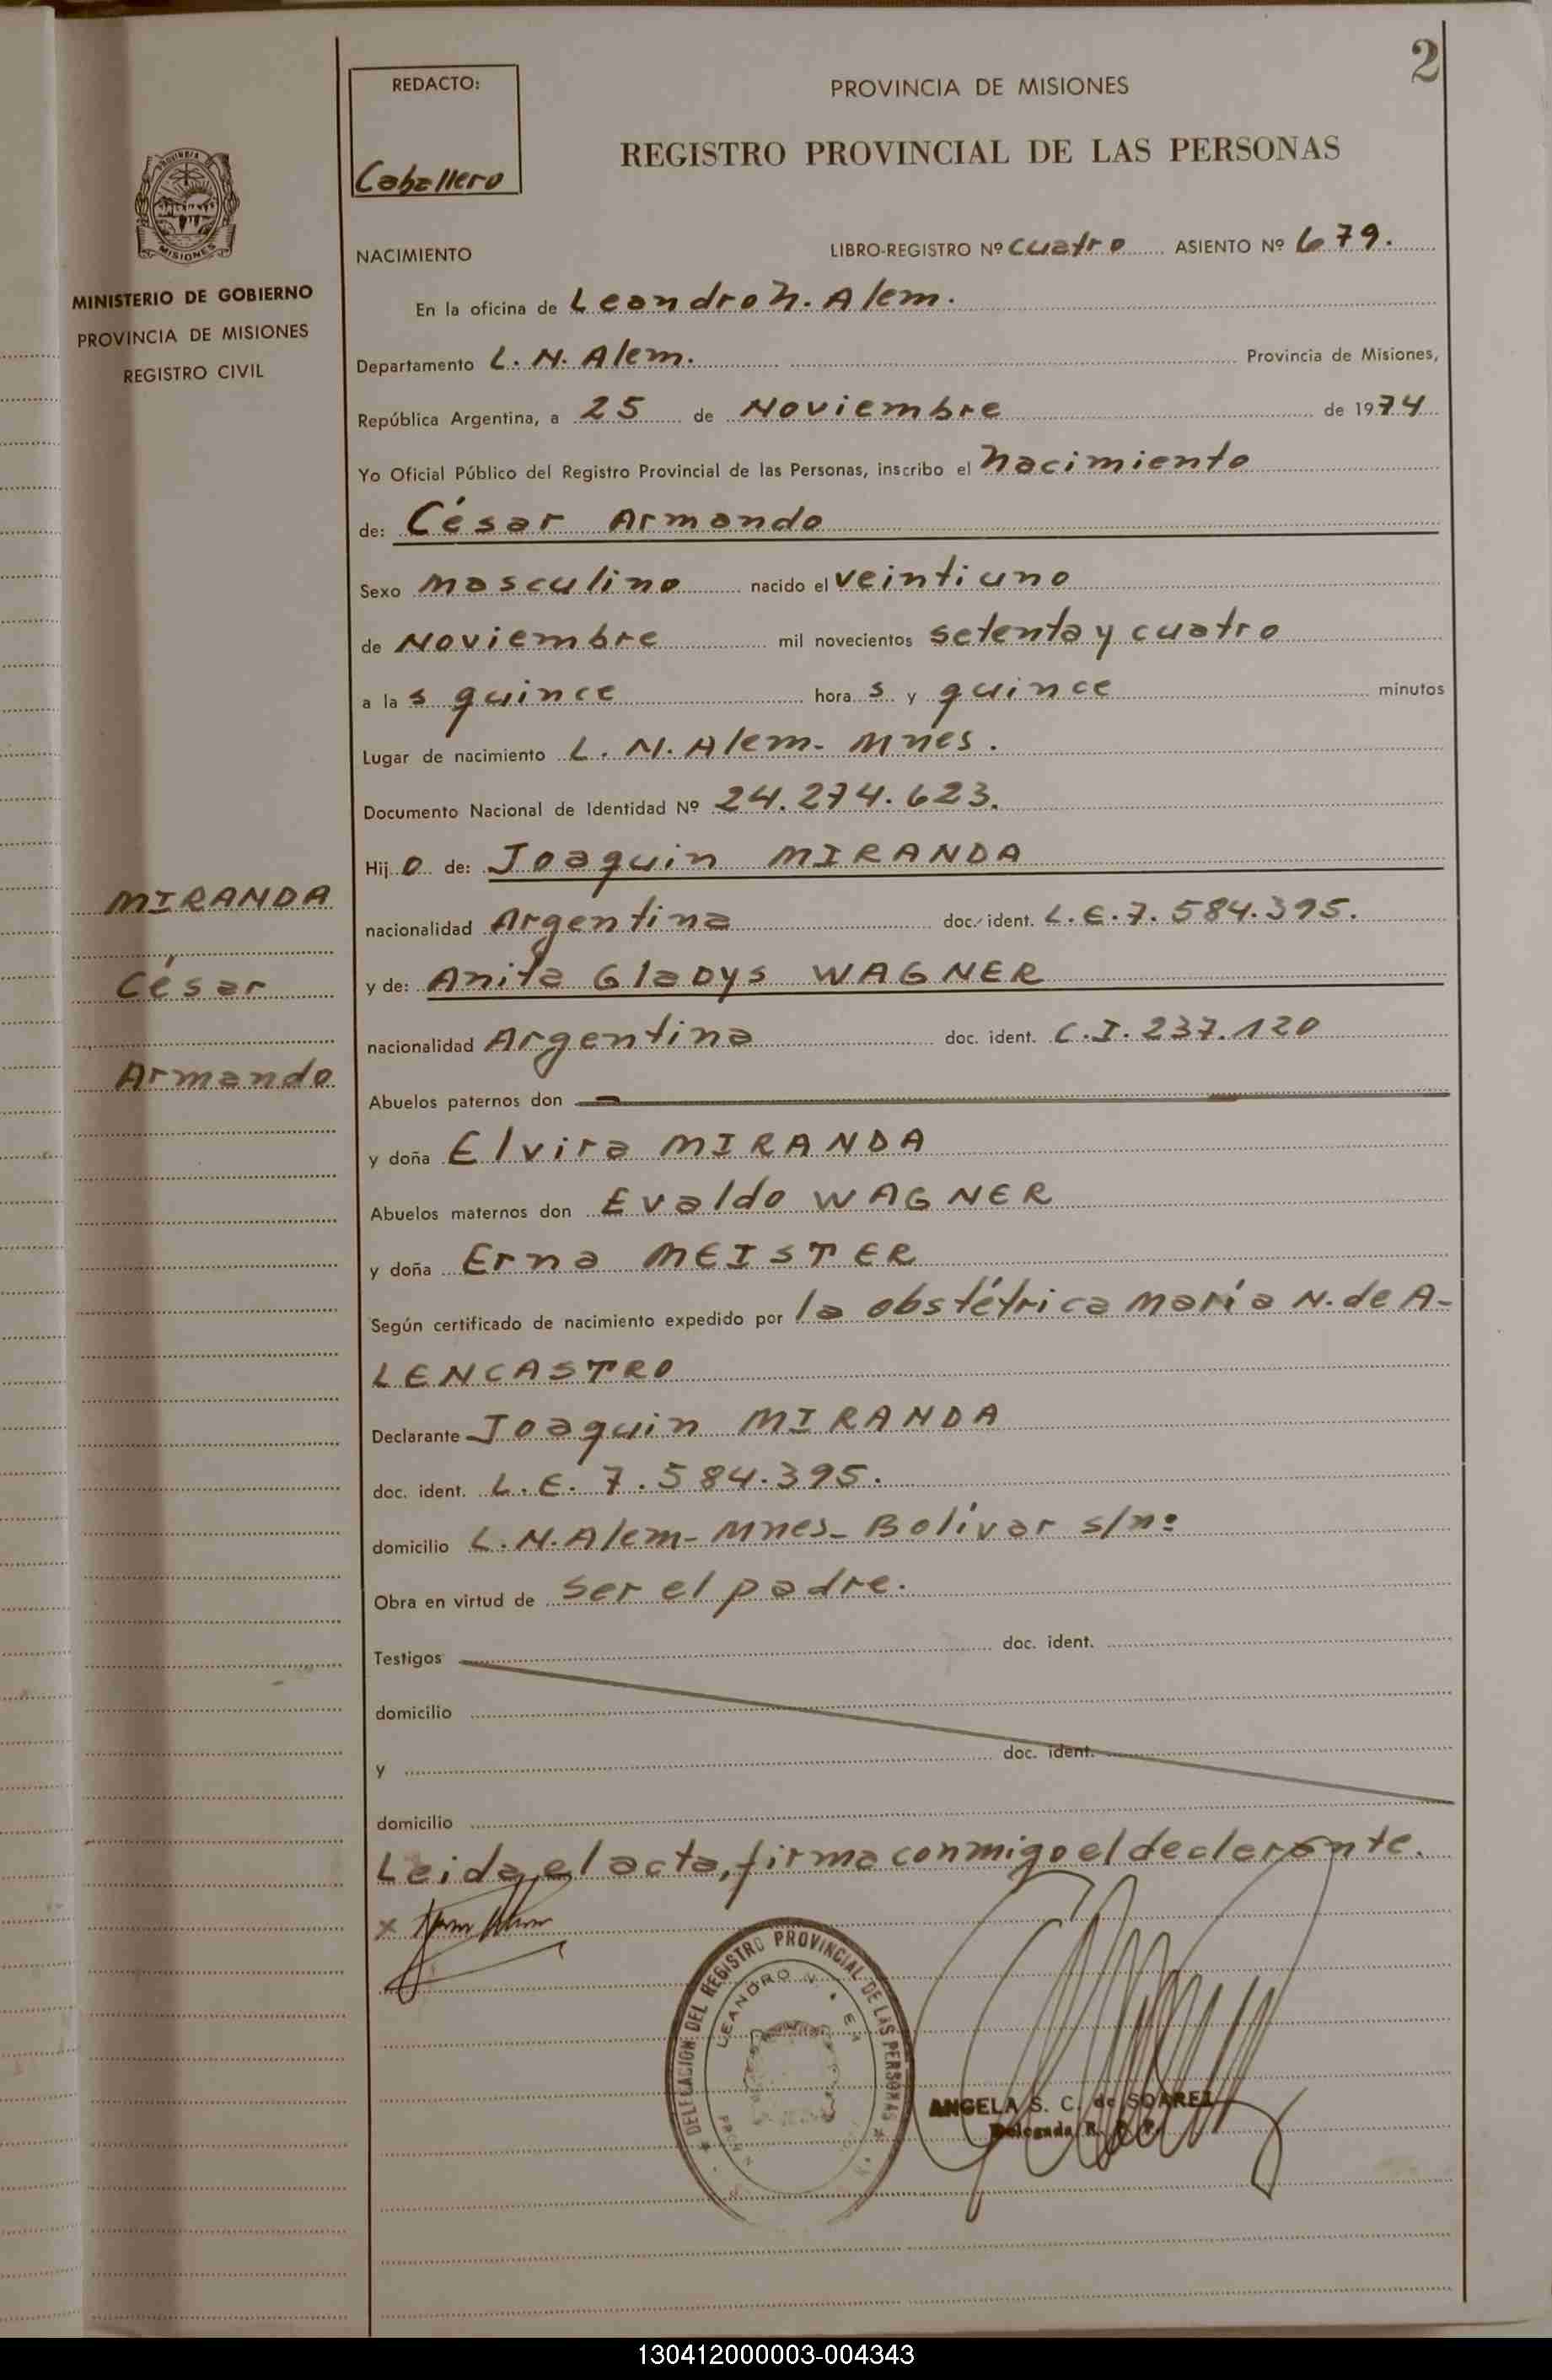 2
REDACTO:
Caballero
PROVINCIA DE MISIONES
REGISTRO PROVINCIAL DE LAS PERSONAS
MISIONES
MINISTERIO DE GOBIERNO
PROVINCIA DE MISIONES
REGISTRO CIVIL
NACIMIENTO LIBRO-REGISTRO Nº cuatro ASIENTO Nº 679.
En la oficina de Leandro N. Alem.
Departamento L. N. Alem. Provincia de Misiones,
República Argentina, a 25 de Noviembre de 1974
Yo Oficial Público del Registro Provincial de las Personas, inscribo el Nacimiento
de: César Armando
Sexo masculino nacido el veintiuno
de Noviembre mil novecientos setenta y cuatro
a las quince horas y quince minutos
Lugar de nacimiento L. N. Alem - Mnes.
Documento Nacional de Identidad Nº 24.274.623.
Hijo de: Joaquin MIRANDA
nacionalidad Argentina doc. ident. L.E. 7.584.395.
y de: Anita Gladys WAGNER
nacionalidad Argentina doc. ident. C.I. 237.120
Abuelos paternos don
y doña Elvira MIRANDA
Abuelos maternos don Evaldo WAGNER
y doña Erna MEISTER
Según certificado de nacimiento expedido por la obstétrica María N. de A-
LENCASTRO
Declarante Joaquin MIRANDA
doc. ident. L.E. 7.584.395.
domicilio L.N.Alem - Mnes - Bolívar s/nº
Obra en virtud de ser el padre.
Testigos doc. ident.
domicilio
y doc. ident.
domicilio
Leida el acta, firma conmigo el declarante.
MIRANDA
César
Armando
x
DELEGACION DEL REGISTRO PROVINCIAL DE LAS PERSONAS
LEANDRO
ANGELA S. C. de SOAREZ
Delegada R. P. P.
130412000003-004343